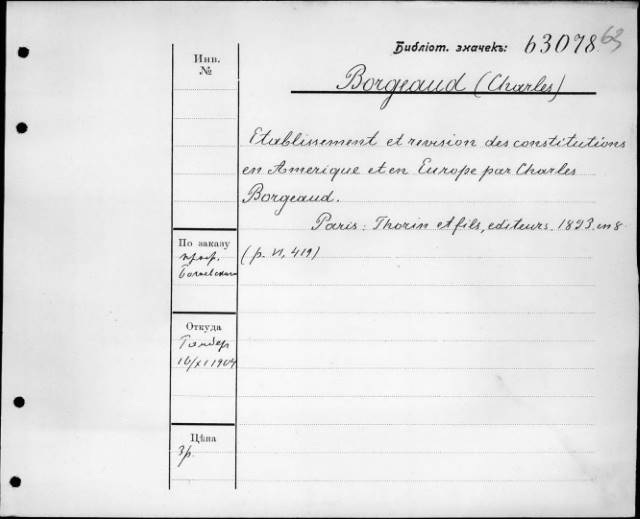 Библіот. значекъ: 63078 63
Инв.
№
Borgeaud (Charles)
Etablissement et revision des constitutions
en Amerique et en Europe par Charles
Borgeaud.
Paris: Thorin et fils, editeurs. 1893. in 8
(p. VI, 419)
По заказу
проф.
Откуда
16/XI 1904
Цѣна
3р.